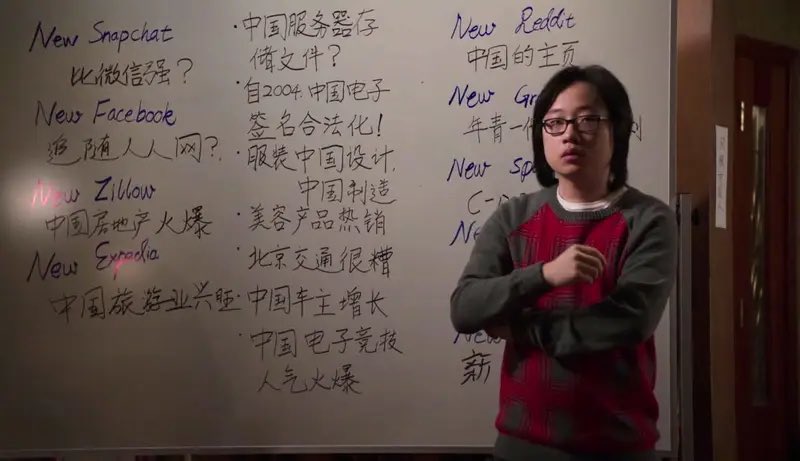 New Snapchat
比微信强？
New Facebook
追随人人网？
New Zillow
中国房地产火爆
New Expadia
中国旅游业兴旺
·中国服务器存
储文件？
·自2004.中国电子
签名合法化！
·服装中国设计.
中国制造
·美容产品热销
·北京交通很糟
·中国车主增长
·中国电子竞技
人气火爆
New Reddit
中国的主页
New Gr
年青一
New Sp
C-
New
新